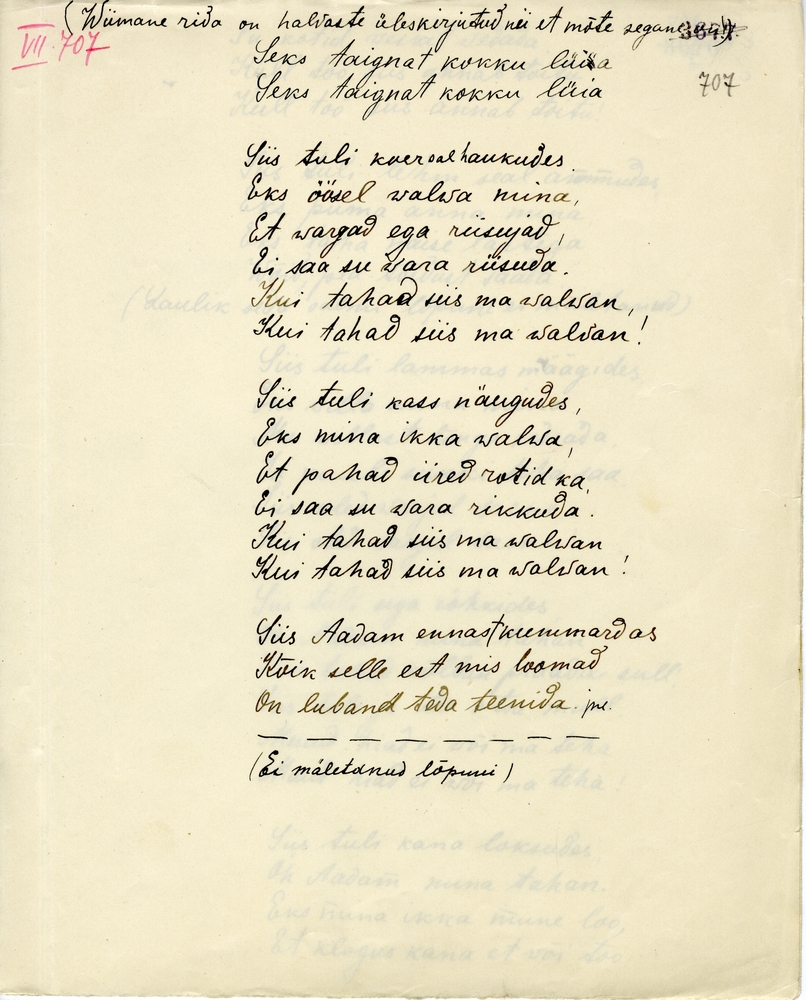 (Wiimane rida on halvaste üleskirjutud nii et mõte segane).
VII. 707
707
Seks taignat kokku lüüa
Seks taignat kokku lüia
Siis tuli koer seal haukudes
Eks öösel walwa mina,
Et wargad ega riisujad,
Ei saa su wara riisuda.
Kui tahad siis ma walwan,
Kui tahad siis ma walvan!
Siis tuli kass näugudes,
Eks mina ikka walwa,
Et pahad iired rotid ka,
Ei saa su wara rikkuda.
Kui tahad siis ma walwan
Kui tahad siis ma walvan!
Siis Aadam ennast kummardas
Kõik selle est mis loomad
On luband teda teenida. jne.
(Ei mäletanud lõpuni)